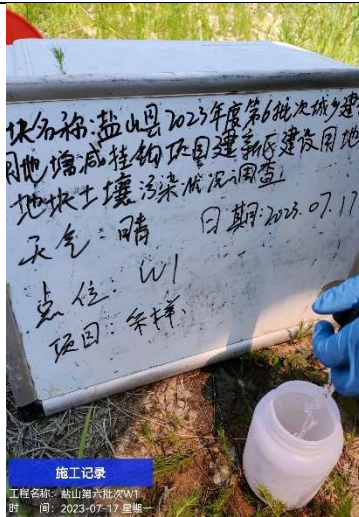 块名称:盐山县2023年度第6批次城乡建设
用地增减挂钩项目建新区建设用地
地块土壤污染状况调查
天气:晴 日期:2023.07.17
点位:W1
项目:采样
施工记录
工程名称:盐山第六批次W1
时 间:2023-07-17 星期一